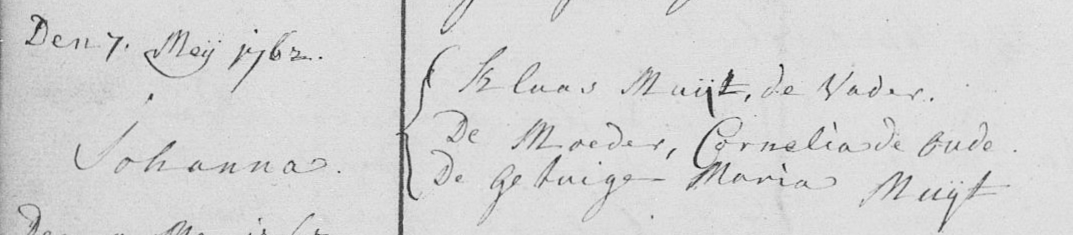 Den 7. Meÿ 1762.
Johanna.
Klaas Muÿt, de Vader.
De Moeder, Cornelia de Oude.
De getuige Maria Muÿt